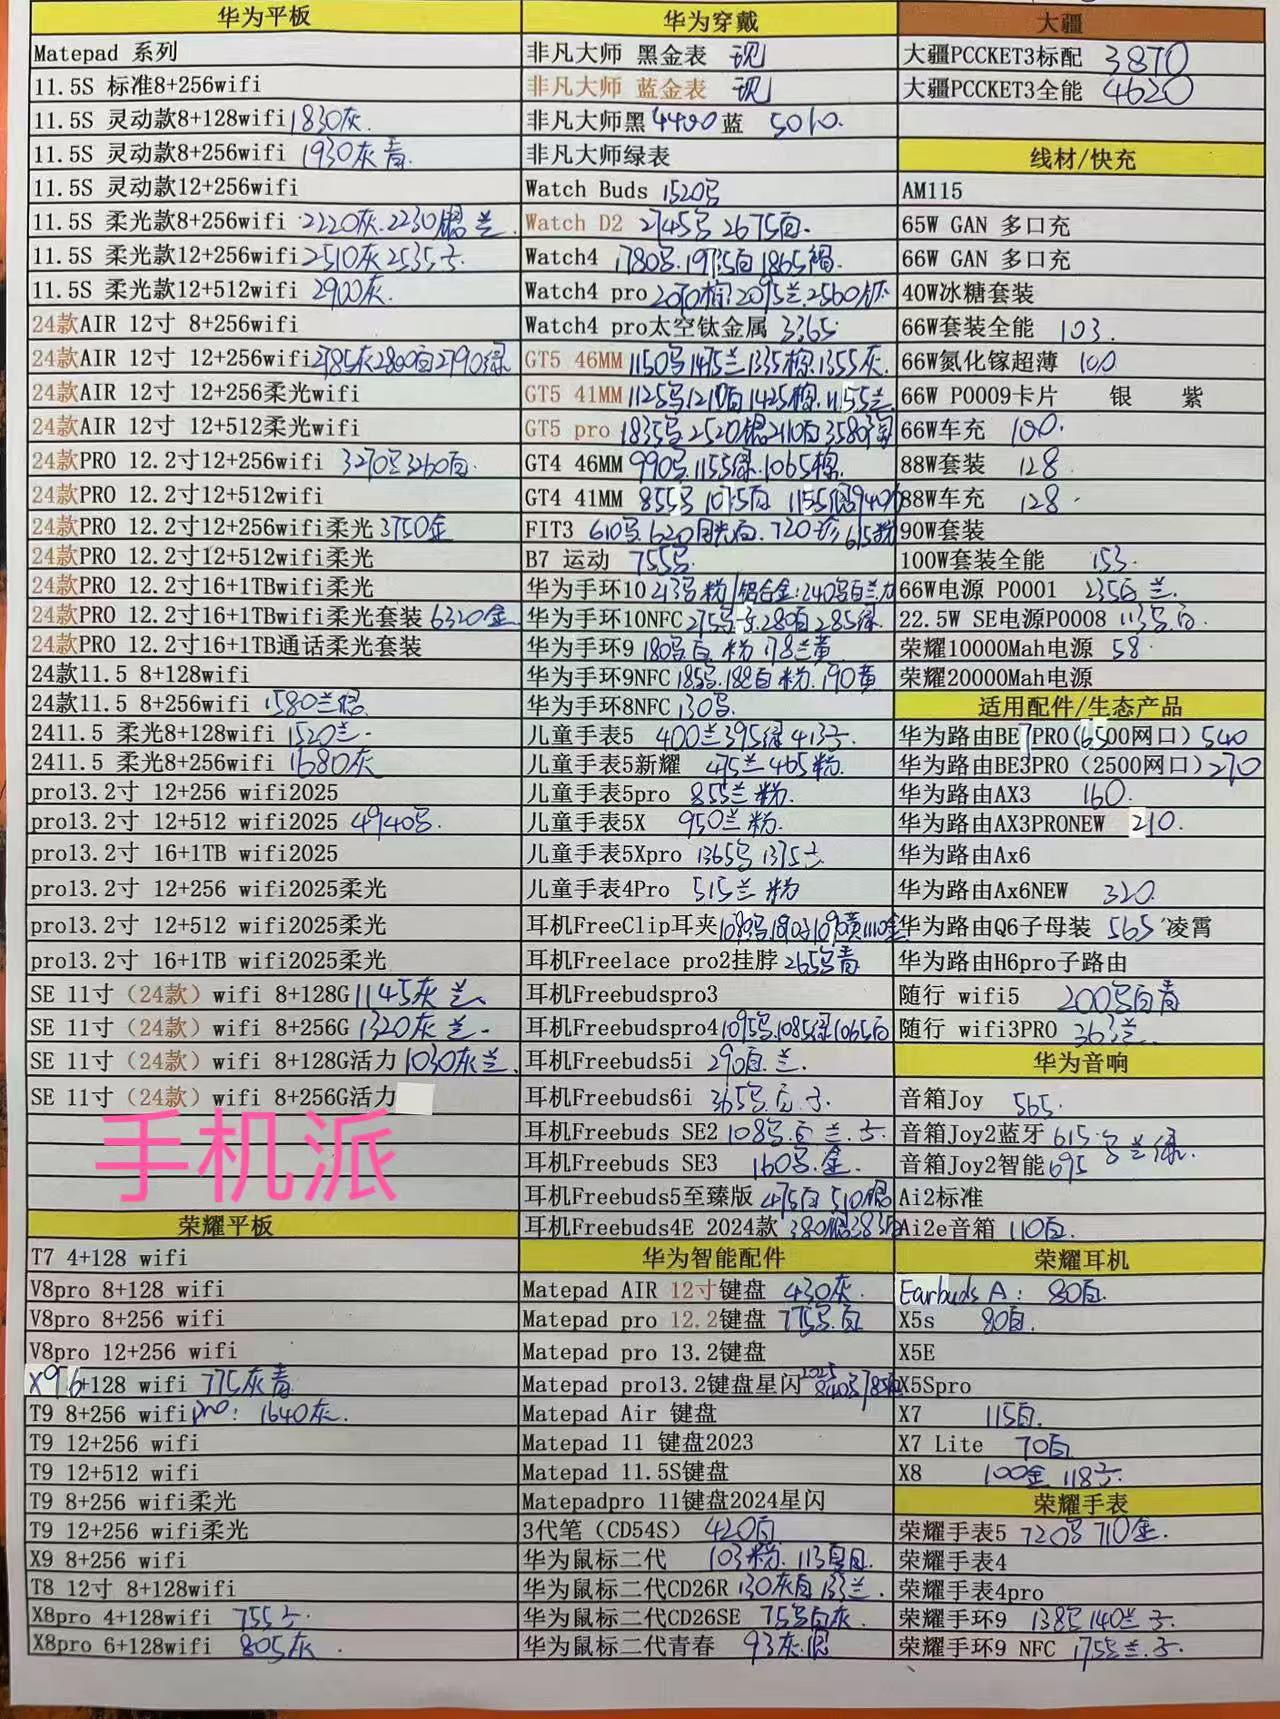 华为平板
Matepad 系列
11.5S 标准8+256wifi
11.5S 灵动款8+128wifi 1830灰.
11.5S 灵动款8+256wifi 1930灰 青.
11.5S 灵动款12+256wifi
11.5S 柔光款8+256wifi 2220灰.2230 兰.
11.5S 柔光款12+256wifi 2510灰 2535
11.5S 柔光款12+512wifi 2900灰.
24款AIR 12寸 8+256wifi
24款AIR 12寸 12+256wifi 2785灰2800白2790绿
24款AIR 12寸 12+256柔光wifi
24款AIR 12寸 12+512柔光wifi
24款PRO 12.2寸12+256wifi 3270 3260白.
24款PRO 12.2寸12+512wifi
24款PRO 12.2寸12+256wifi柔光 3750金
24款PRO 12.2寸12+512wifi柔光
24款PRO 12.2寸16+1TBwifi柔光
24款PRO 12.2寸16+1TBwifi柔光套装 6320金
24款PRO 12.2寸16+1TB通话柔光套装
24款11.5 8+128wifi
24款11.5 8+256wifi 1580兰
2411.5 柔光8+128wifi 1520兰.
2411.5 柔光8+256wifi 1680灰
pro13.2寸 12+256 wifi2025
pro13.2寸 12+512 wifi2025 4940
pro13.2寸 16+1TB wifi2025
pro13.2寸 12+256 wifi2025柔光
pro13.2寸 12+512 wifi2025柔光
pro13.2寸 16+1TB wifi2025柔光
SE 11寸（24款）wifi 8+128G 1145灰 兰.
SE 11寸（24款）wifi 8+256G 1320灰 兰.
SE 11寸（24款）wifi 8+128G活力 1030灰兰.
SE 11寸（24款）wifi 8+256G活力
手机派
荣耀平板
T7 4+128 wifi
V8pro 8+128 wifi
V8pro 8+256 wifi
V8pro 12+256 wifi
X9 6+128 wifi 775灰青
T9 8+256 wifi pro: 1640灰.
T9 12+256 wifi
T9 12+512 wifi
T9 8+256 wifi柔光
T9 12+256 wifi柔光
X9 8+256 wifi
T8 12寸 8+128wifi
X8pro 4+128wifi 755
X8pro 6+128wifi 805灰.
华为穿戴
非凡大师 黑金表 现
非凡大师 蓝金表 现
非凡大师黑 4400 蓝 5010.
非凡大师绿表
Watch Buds 1520
Watch D2 2745 2675白.
Watch4 1780.1975白1865.
Watch4 pro 2070棕2095兰.2560
Watch4 pro太空钛金属 3365.
GT5 46MM 1150 1475兰1335棕.1355灰.
GT5 41MM 1125 1210白1425棕.1155兰
GT5 pro 1835 2520 2110白3580
GT4 46MM 990.1155绿.1065棕.
GT4 41MM 855 1075白 1155
FIT3 610.620月光白.720 615粉
B7 运动 755
华为手环10 213 粉 铝合金:240 白兰
华为手环10NFC 275 280白285绿.
华为手环9 180 白 粉 178兰黄
华为手环9NFC 185.188白 粉.190黄
华为手环8NFC 130
儿童手表5 400兰395绿413
儿童手表5新耀 475兰465粉.
儿童手表5pro 855兰 粉.
儿童手表5X 950兰 粉.
儿童手表5Xpro 1365 1375
儿童手表4Pro 515兰 粉
耳机FreeClip耳夹
耳机Freelace pro2挂脖 265 青
耳机Freebudspro3
耳机Freebudspro4 1095.1085绿1065白
耳机Freebuds5i 290白.兰.
耳机Freebuds6i 365.白.
耳机Freebuds SE2 108.白 兰.
耳机Freebuds SE3 160.金.
耳机Freebuds5至臻版 475白 510
耳机Freebuds4E 2024款 380 383白
华为智能配件
Matepad AIR 12寸键盘 430灰.
Matepad pro 12.2键盘 775.白
Matepad pro 13.2键盘
Matepad pro13.2键盘星闪 2025 840 785白
Matepad Air 键盘
Matepad 11 键盘2023
Matepad 11.5S键盘
Matepadpro 11键盘2024星闪
3代笔（CD54S） 420白
华为鼠标二代 103粉. 113
华为鼠标二代CD26R 130灰白 133兰.
华为鼠标二代CD26SE 75 白灰.
华为鼠标二代青春 93灰.
大疆
大疆PCCKET3标配 3870
大疆PCCKET3全能 4620
线材/快充
AM115
65W GAN 多口充
66W GAN 多口充
40W冰糖套装
66W套装全能 103.
66W氮化镓超薄 100
66W P0009卡片 银 紫
66W车充 100.
88W套装 128.
88W车充 128.
90W套装
100W套装全能 153.
66W电源 P0001 235白 兰.
22.5W SE电源P0008 113.白.
荣耀10000Mah电源 58.
荣耀20000Mah电源
适用配件/生态产品
华为路由BE7PRO(6500网口) 540
华为路由BE3PRO（2500网口）270
华为路由AX3 160.
华为路由AX3PRONEW 210.
华为路由Ax6
华为路由Ax6NEW 320.
华为路由Q6子母装 565 凌霄
华为路由H6pro子路由
随行 wifi5 200 白青
随行 wifi3PRO 363兰.
华为音响
音箱Joy 565.
音箱Joy2蓝牙 615.
音箱Joy2智能 695 兰绿.
Ai2标准
Ai2e音箱 110白.
荣耀耳机
Earbuds A: 80白.
X5s 80白.
X5E
X5Spro
X7 115白.
X7 Lite 70白
X8 100金 118
荣耀手表
荣耀手表5 720 710金.
荣耀手表4
荣耀手表4pro
荣耀手环9 138 140兰
荣耀手环9 NFC 175 兰.